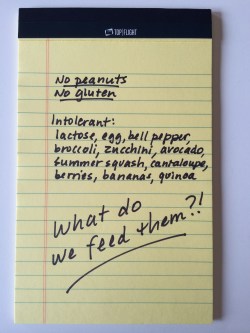 TOPFLIGHT
No peanuts
No gluten
Intolerant:
lactose, egg, bell pepper,
broccoli, zucchini, avocado,
summer squash, cantaloupe,
berries, bananas, quinoa
What do
we feed them?!